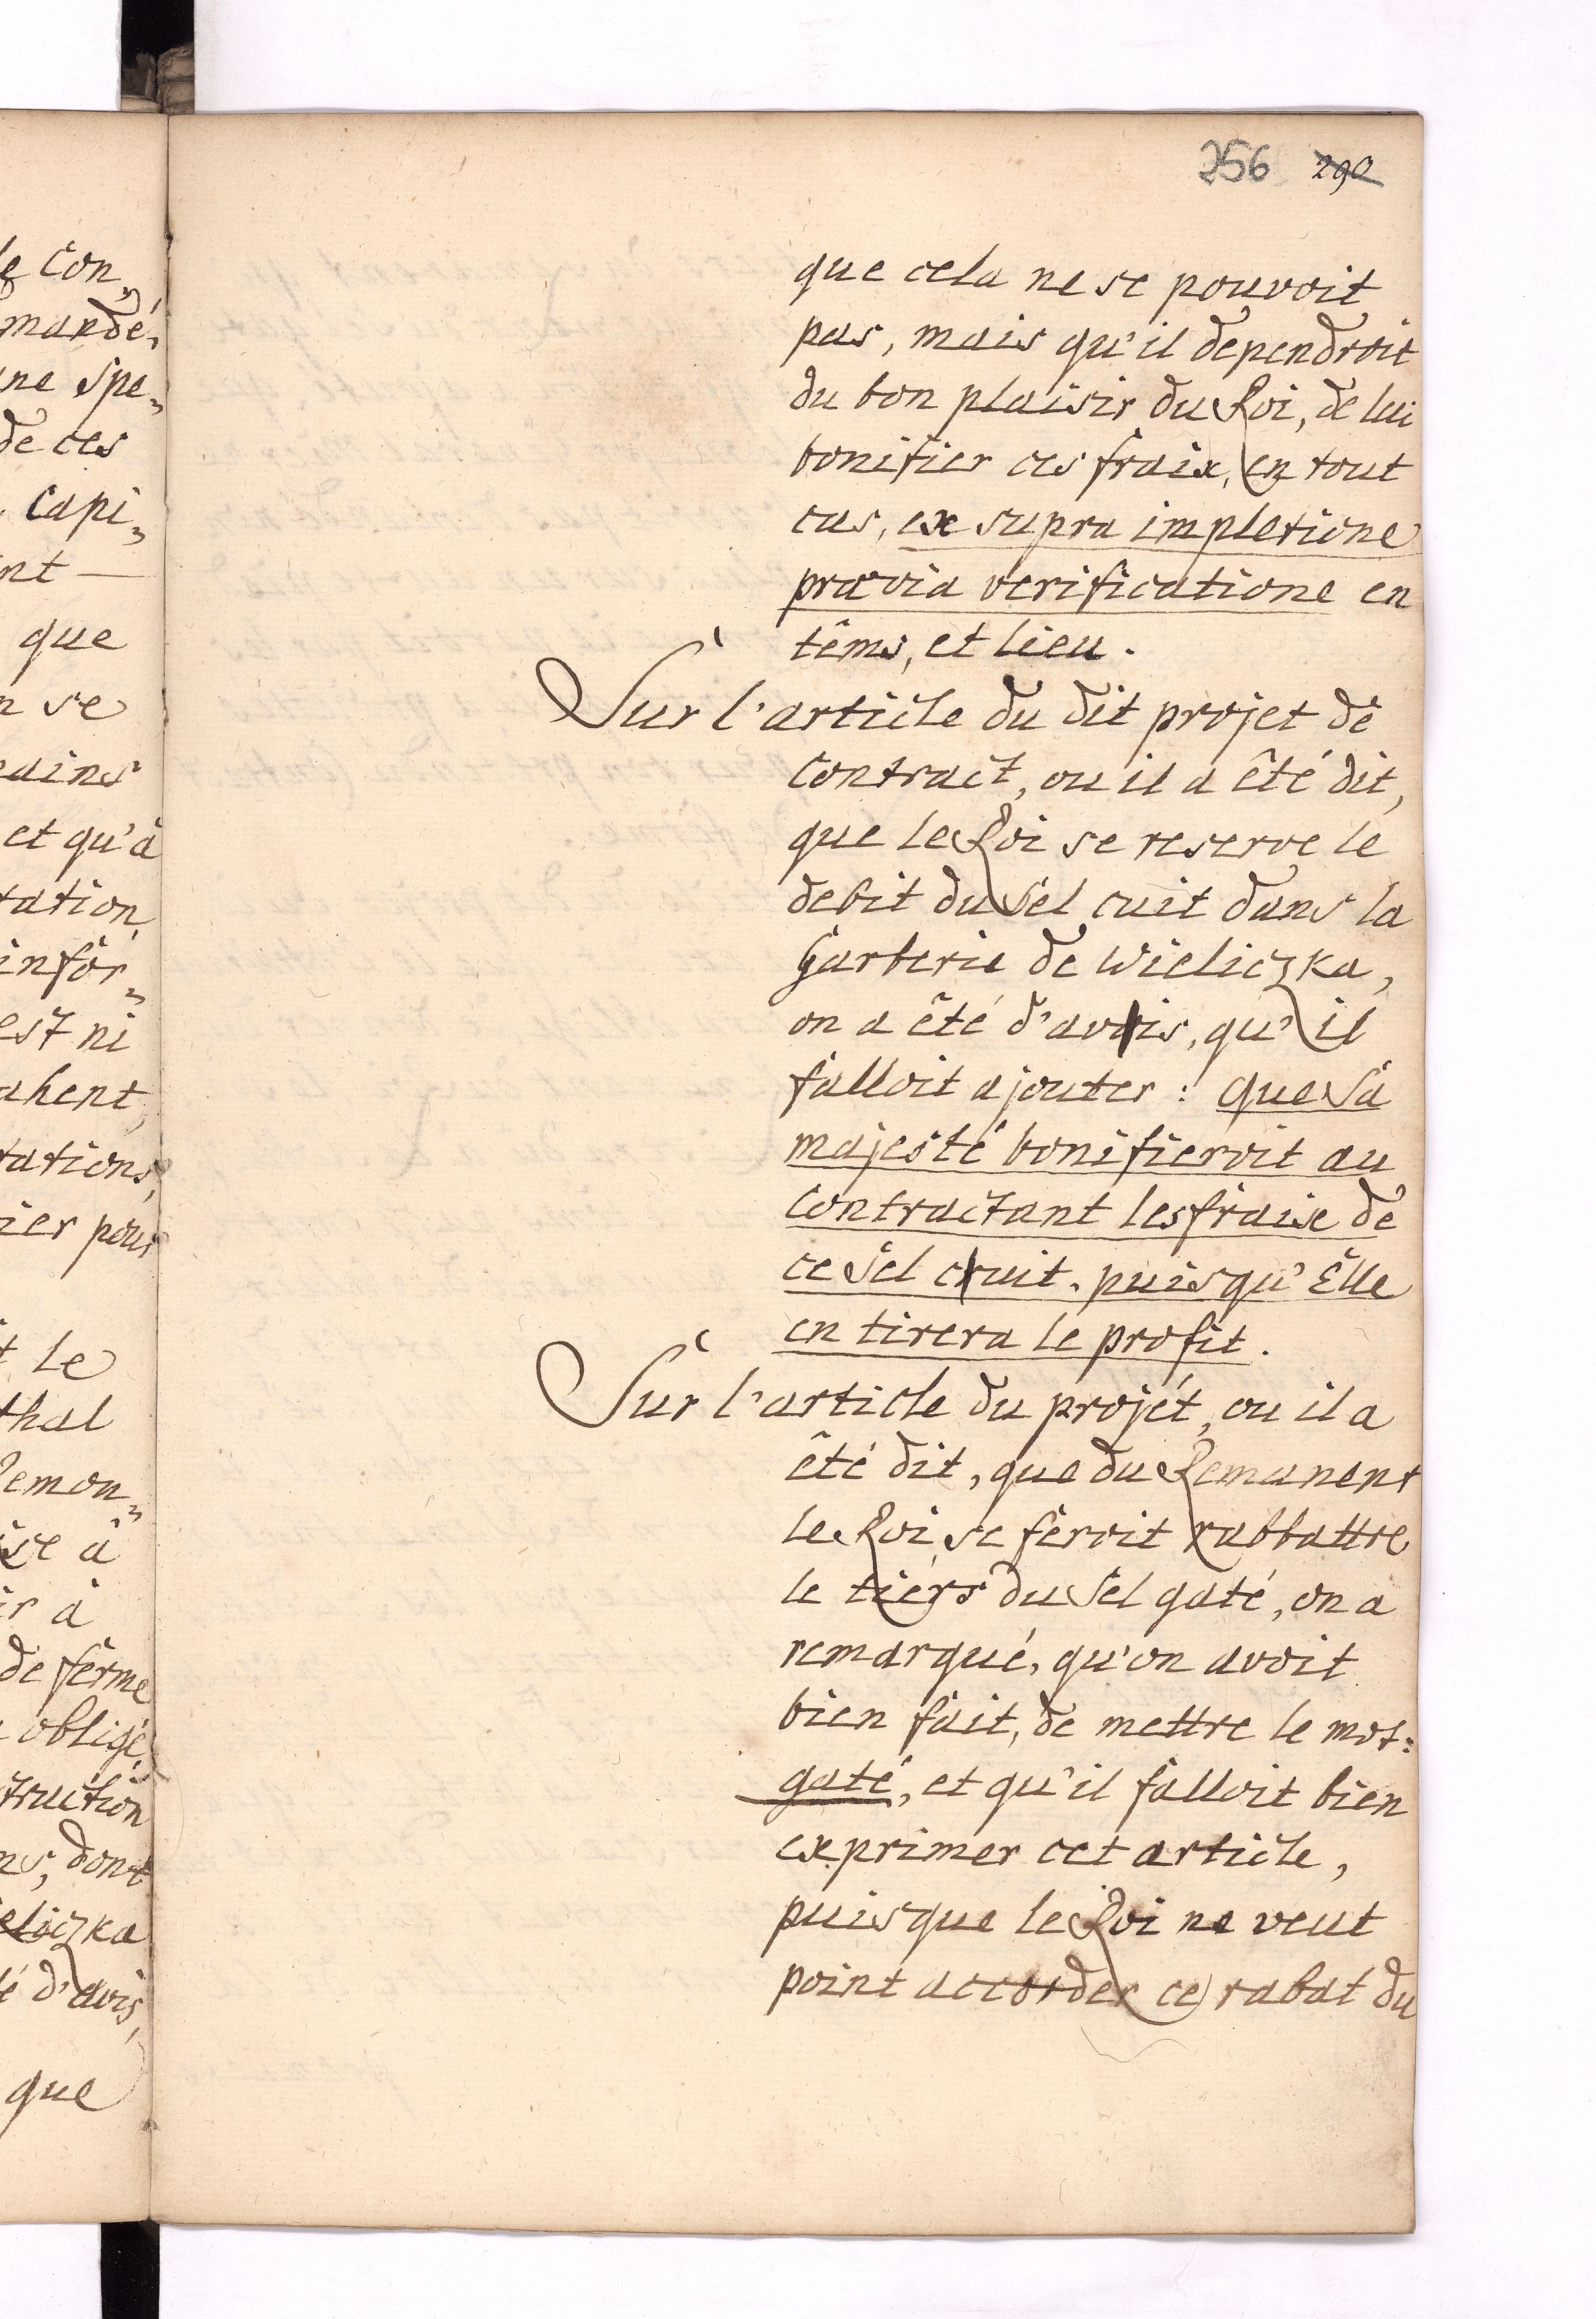 le Con„
mandé,
ne spe„
de ces
Capi„
nt —
que
n se
ains
et qu'à
tation
infor„
est ni
ahent,
tations,
ier pour
t le
thal
Remon„
ise à
ir à
de ferme
obligé
truction
ns, dont
eliczka
té d'avis,
que
256 290
que cela ne se pouvoit
pas, mais qu'il dependroit
du bon plaisir du Roi, de lui
bonifier ces fraix, en tout
cas, ex supra impletione
prævia verificatione en
têms, et lieu.
Sur l'article du dit projet de
Contract, ou il a êté dit,
que le Roi se reserve le
debit du Sel cuit dans la
Garberie de Wieliczka,
on a êté d'avis, qu'il
falloit ajouter: que Sa
majesté bonifieroit au
Contractant les fraix de
ce Sel cuit, puisqu'Elle
en tirera le profit.
Sur l'article du projét, ou il a
êté dit, que du Remanent
le Roi se feroit rabbattre
le tiers du Sel gaté, on a
remarqué, qu'on avoit
bien fait, de mettre le mot:
gaté, et qu'il falloit bien
exprimer cet article,
puisque le Roi ne veut
point accorder ce rabat du